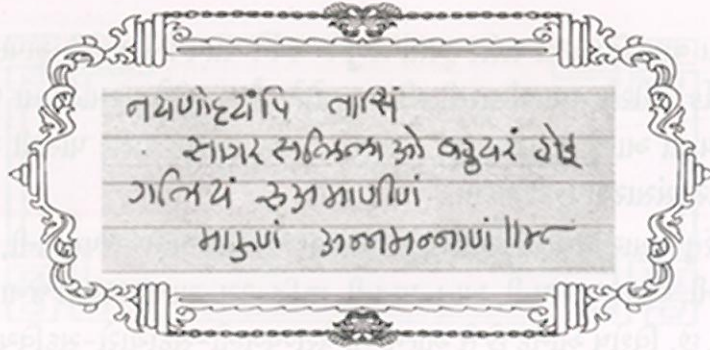 नयणोदयंपि तासिं
सागर सलिलाओ बहुयरं होइ
गलियं रुअमाणीणं
माऊणं अन्नमन्नाणं ॥